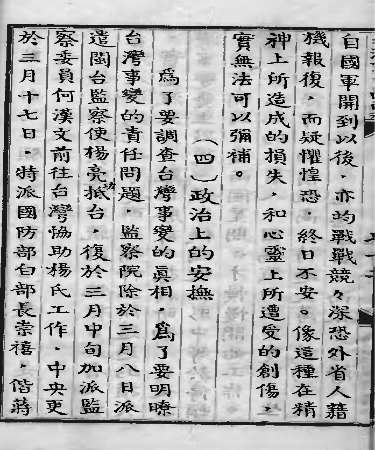 自國軍開到以後，亦均戰戰競々深恐外省人藉
機報復，而疑懼惶恐，終日不安。像這種在精
神上所造成的損失，和心靈上所遭受的創傷，
實無法可以彌補。
（四）政治上的安撫
為了要調查台灣事變的真相，為了要明瞭
台灣事變的責任問題，監察院除於三月八日派
遣閩台監察使楊亮功抵台，復於三月中旬加派監
察委員何漢文前往台灣協助楊氏工作，中央更
於三月十七日，特派國防部白部長崇禧，偕蔣